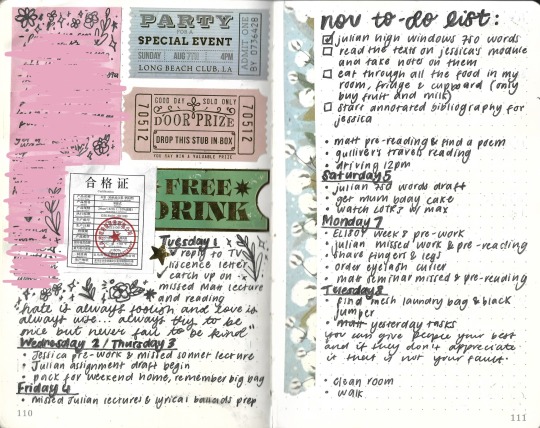 PARTY
FOR A
SPECIAL EVENT
SUNDAY AUG 7TH 4PM
LONG BEACH CLUB, LA
ADMIT ONE
BY 0776428
GOOD DAY SOLD ONLY
DOOR PRIZE
DROP THIS STUB IN BOX
70512
70512
YOU MAY WIN A VALUABLE PRIZE
合格证
FREE
DRINK
Tuesday 1
reply to TV
liscence letter
catch up on
missed Matt lecture
and reading
"hate is always foolish and love is
always wise... always try to be
nice but never fail to be kind"
Wednesday 2 / Thursday 3
• Jessica pre-work & missed sonnet lecture
• Julian assignment draft begin
• pack for weekend home, remember big bag
Friday 4
• missed Julian lectures & lyrical ballads prep
110
nov to-do list:
julian high windows 750 words
read the texts on jessica's module
and take notes on them
eat through all the food in my
room, fridge & cupboard (only
buy fruit and milk)
start annotated bibliography for
jessica
• matt pre-reading & find a poem
• gulliver's travels reading
• driving 12pm
Saturday 5
• julian 750 words draft
• get mum bday cake
• watch LOTRs w/ max
Monday 7
• ELIZOT week 8 pre-work
• julian missed work & pre-reading
• shave fingers & legs
• order eyelash curler
• matt seminar missed & pre-reading
Tuesday 8
• find mesh laundry bag & black
jumper
• matt yesterday tasks
you can give people your best
and if they don't appreciate
it that is not your fault.
• clean room
• walk
111